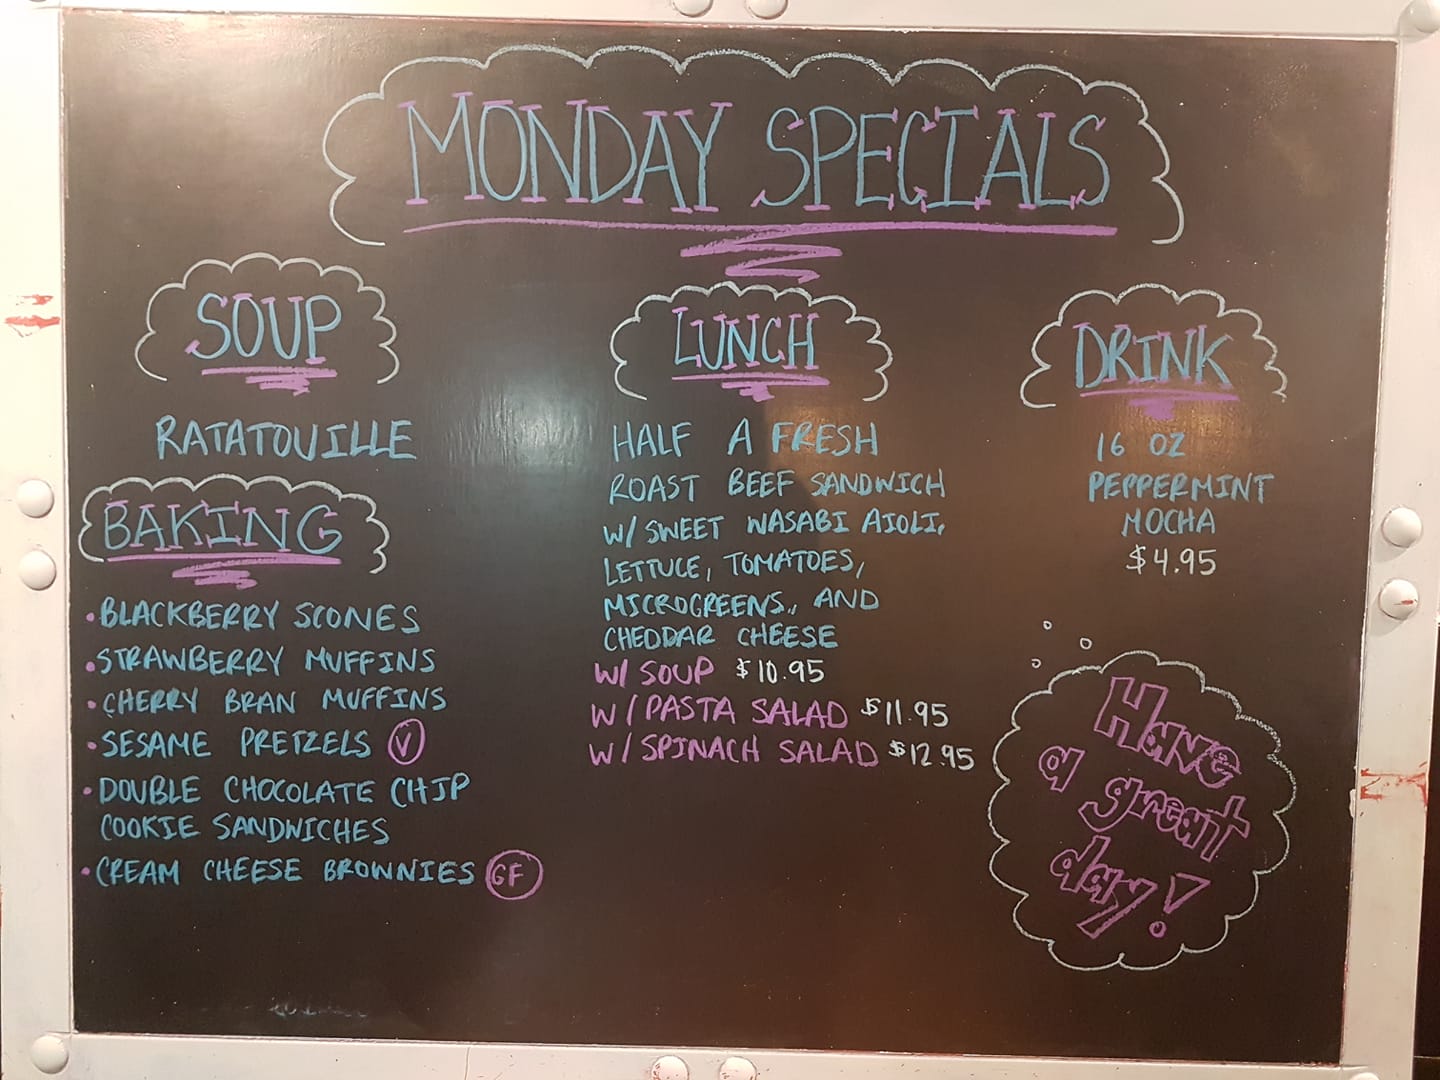 MONDAY SPECIALS
SOUP
RATATOUILLE
BAKING
•BLACKBERRY SCONES
•STRAWBERRY MUFFINS
•CHERRY BRAN MUFFINS
•SESAME PRETZELS V
•DOUBLE CHOCOLATE CHIP
COOKIE SANDWICHES
•CREAM CHEESE BROWNIES GF
LUNCH
HALF A FRESH
ROAST BEEF SANDWICH
W/ SWEET WASABI AIOLI,
LETTUCE, TOMATOES,
MICROGREENS., AND
CHEDDAR CHEESE
W/ SOUP $10.95
W/ PASTA SALAD $11.95
W/ SPINACH SALAD $12.95
DRINK
16 OZ
PEPPERMINT
MOCHA
$4.95
Have
a great
day!